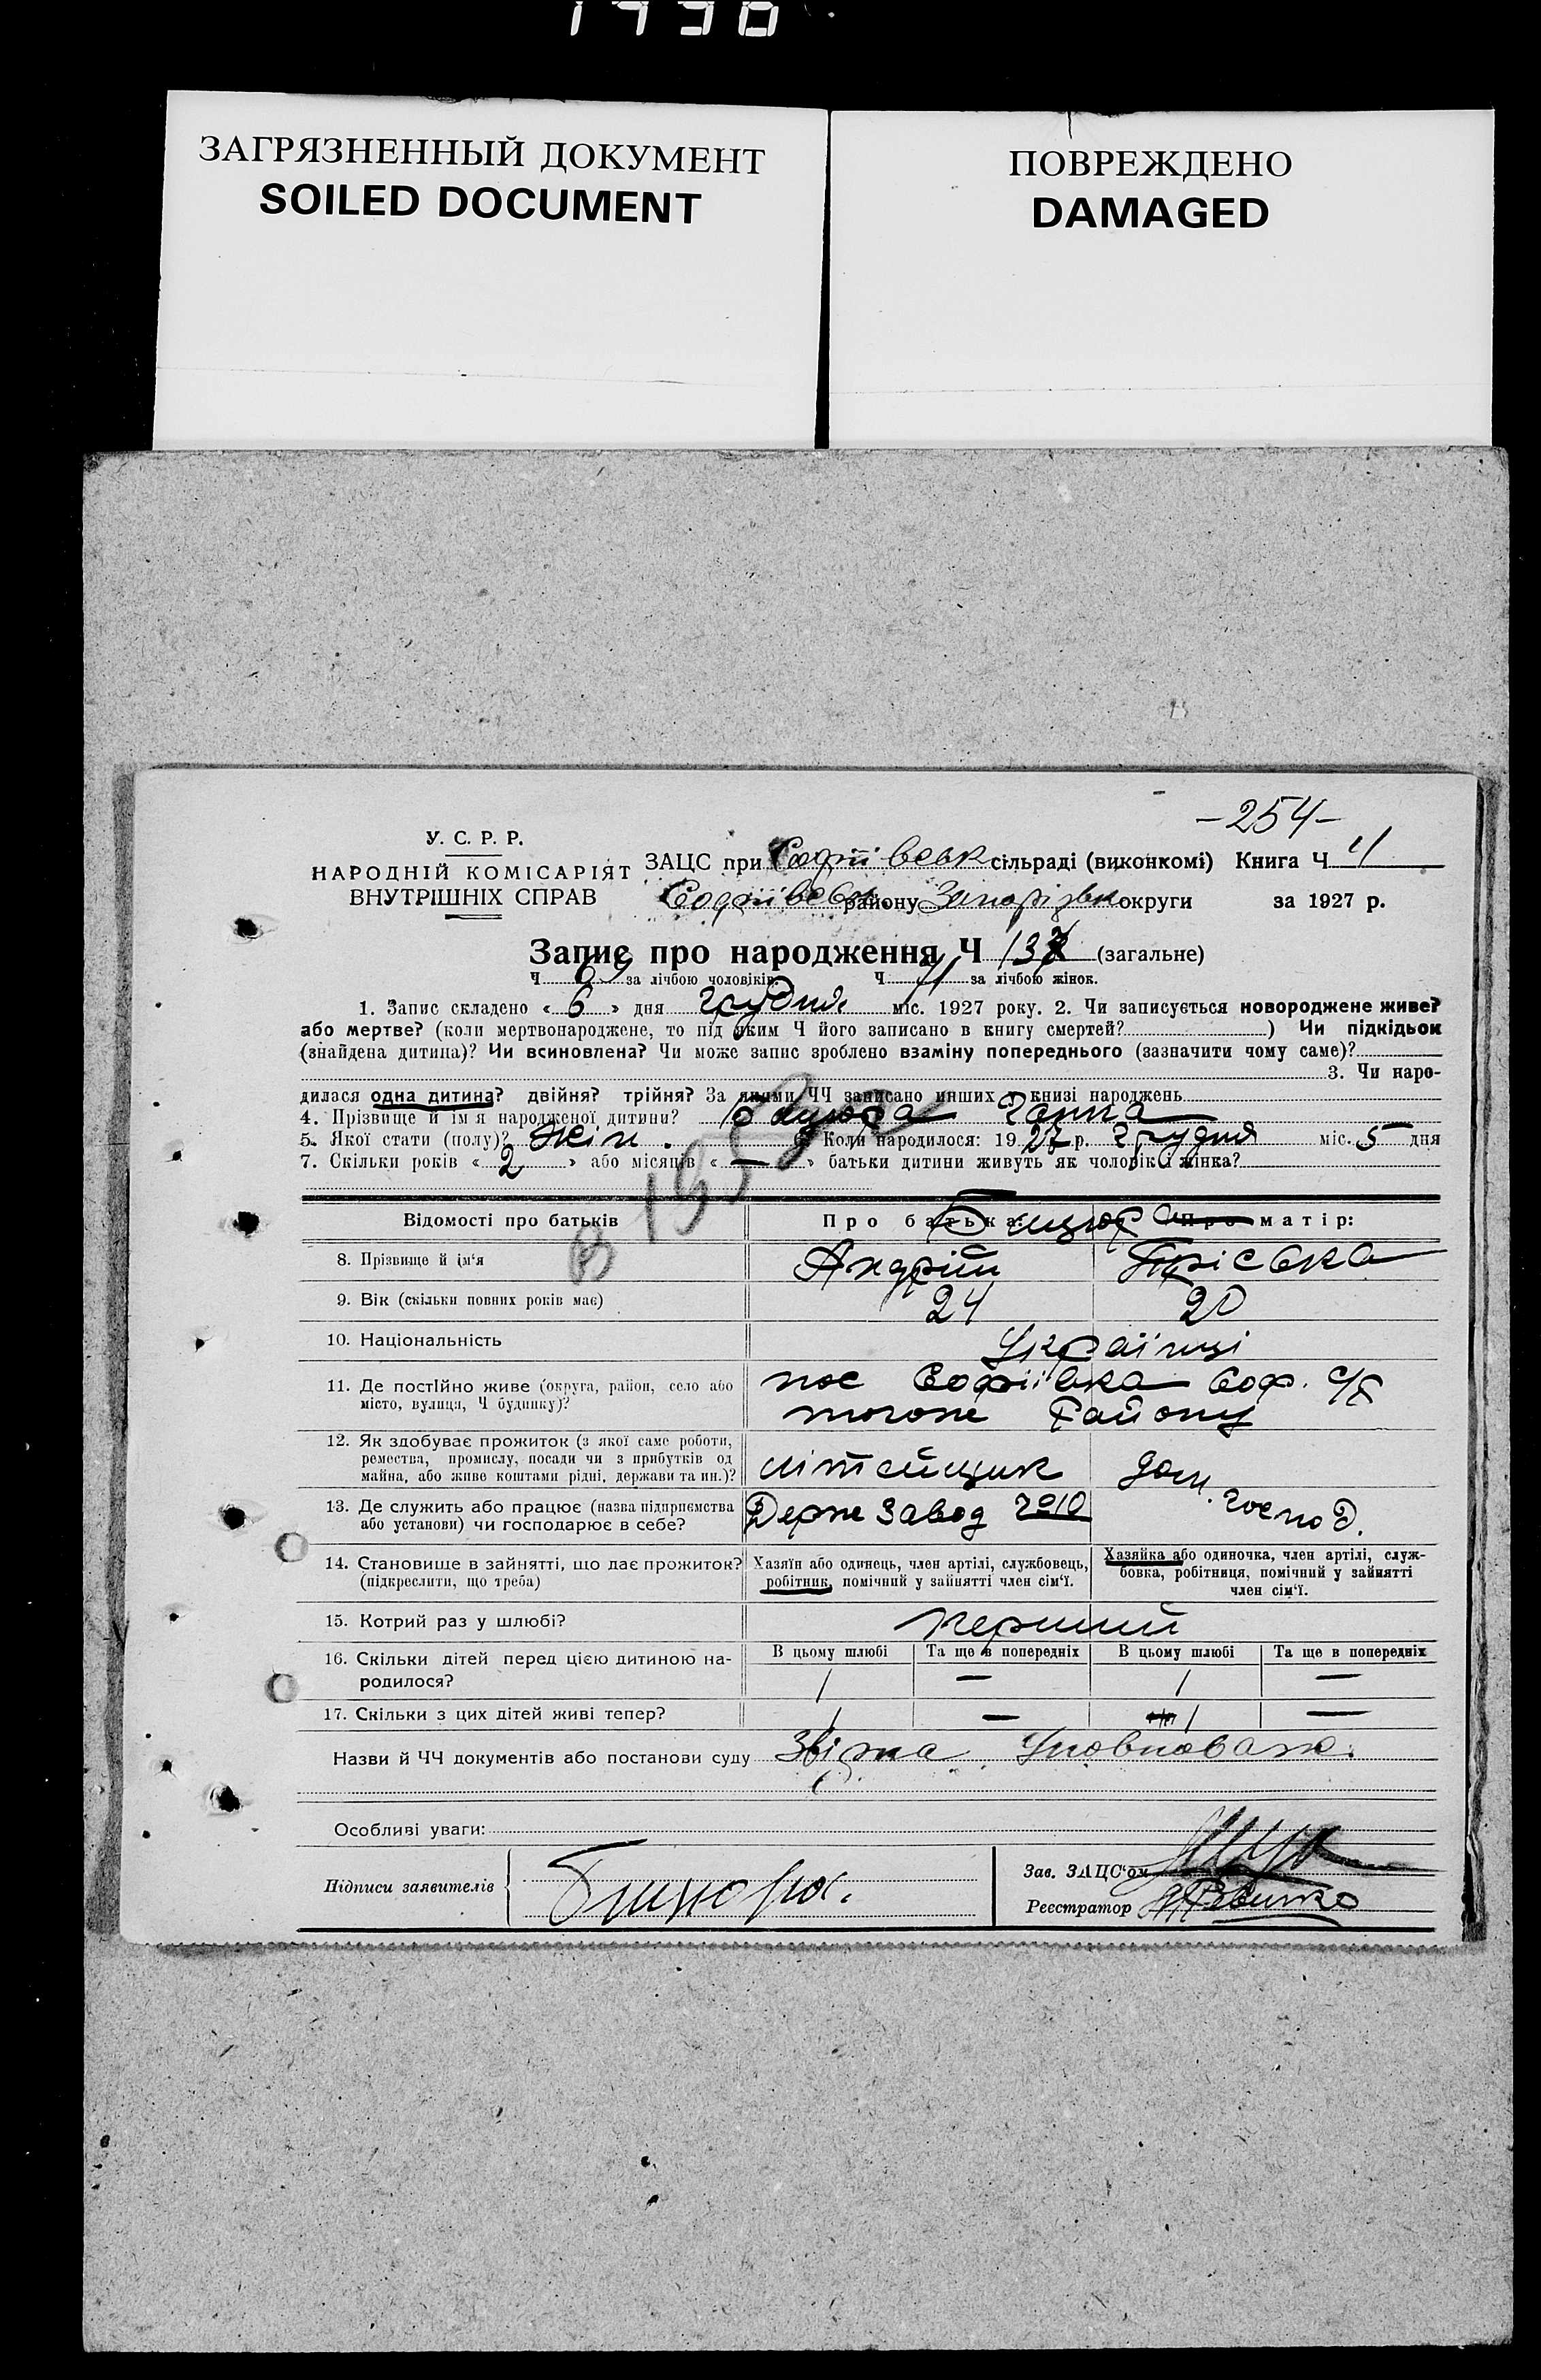 1930
ЗАГРЯЗНЕННЫЙ ДОКУМЕНТ
SOILED DOCUMENT
ПОВРЕЖДЕНО
DAMAGED
-254-
У. С. Р. Р.
НАРОДНІЙ КОМІСАРІЯТ
ВНУТРІШНІХ СПРАВ
ЗАЦС при Софіївськ сільраді (виконкомі) Книга Ч 4
Софіївськ. району Запорізьк округи за 1927 р.
Запис про народження Ч 137 (загальне)
Ч 69 за лічбою чоловіків. Ч 71 за лічбою жінок.
1. Запис складено « 6 » дня грудня міс. 1927 року. 2. Чи записується новороджене живе?
або мертве? (коли мертвонароджене, то під яким Ч його записано в книгу смертей? ) Чи підкідьок
(знайдена дитина)? Чи всиновлена? Чи може запис зроблено взаміну попереднього (зазначити чому саме)?
3. Чи наро-
дилася одна дитина? двійня? трійня? За якими ЧЧ записано инших у книзі народжень
4. Прізвище й ім'я народженої дитини? Бицюра Ганна
5. Якої стати (полу)? Жін. 6. Коли народилося: 19 27 р. грудня міс. 5 дня
7. Скільки років « 2 » або місяців « — » батьки дитини живуть як чоловік і жінка?
Відомості про батьків
Про батька: Бицюра Про матір:
8. Прізвище й ім'я Андрій Пріська
9. Вік (скільки повних років має) 24 20
10. Національність Українці
11. Де постійно живе (округа, район, село або
місто, вулиця, Ч будинку)?
пос Софіївка Соф. С/Р
тогоже Району
12. Як здобуває прожиток (з якої саме роботи,
ремества, промислу, посади чи з прибутків од
майна, або живе коштами рідні, держави та ин.)?
літейщик дом. господ.
13. Де служить або працює (назва підприємства
або установи) чи господарює в себе?
Держ Завод Ч 10
14. Становище в зайнятті, що дає прожиток?
(підкреслити, що треба)
Хазяїн або одинець, член артілі, службовець,
робітник, помічний у зайнятті член сім'ї.
Хазяйка або одиночка, член артілі, служ-
бовка, робітниця, помічний у зайнятті
член сім'ї.
15. Котрий раз у шлюбі? перший
16. Скільки дітей перед цією дитиною на-
родилося?
В цьому шлюбі Та ще в попередніх В цьому шлюбі Та ще в попередніх
1 — 1 —
17. Скільки з цих дітей живі тепер? 1 — 1 —
Назви й ЧЧ документів або постанови суду Звірта Уповноваж.
Особливі уваги:
Підписи заявителів Бицюра.
Зав. ЗАЦС'ом
Реєстратор